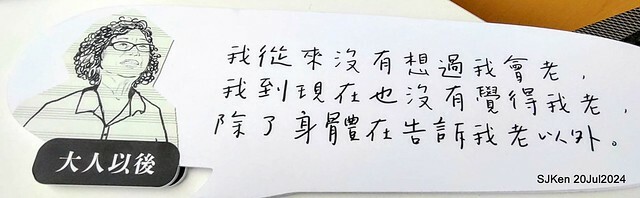 我從來沒有想過我會老，
我到現在也沒有覺得我老，
除了身體在告訴我老以外。
大人以後
SJKen 20Jul2024